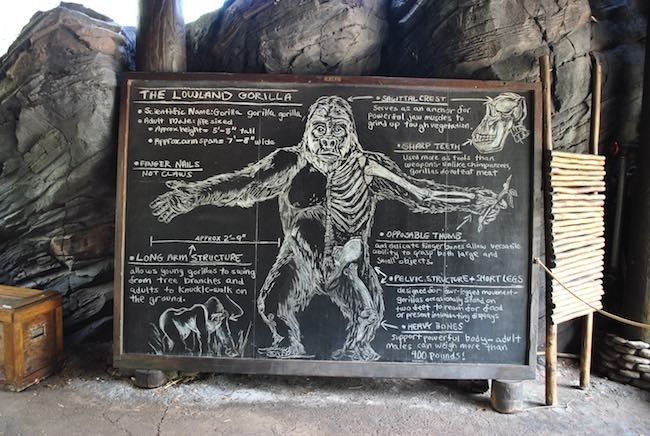 THE LOWLAND GORILLA
• Scientific Name: Gorilla gorilla gorilla
• Adult Male: life sized
• Approx height = 5'-8" tall
• Approx arm span = 7'-8" wide
• FINGER NAILS
NOT CLAWS
APPROX 2'-9"
• LONG ARM STRUCTURE
allows young gorillas to swing
from tree branches and
adults to knuckle-walk on
the ground.
• SAGITTAL CREST
Serves as an anchor for
powerful jaw muscles to
grind up tough vegetation.
• SHARP TEETH
Used more as tools than
weapons - unlike chimpanzees,
gorillas do not eat meat
• OPPOSABLE THUMB
and delicate finger bones allow versatile
ability to grasp both large and
small objects.
• PELVIC STRUCTURE + SHORT LEGS
designed for four-legged movement -
gorillas occasionally stand on
two feet to reach for food
or present intimidating displays
• HEAVY BONES
support powerful body - adult
males can weigh more than
400 pounds!